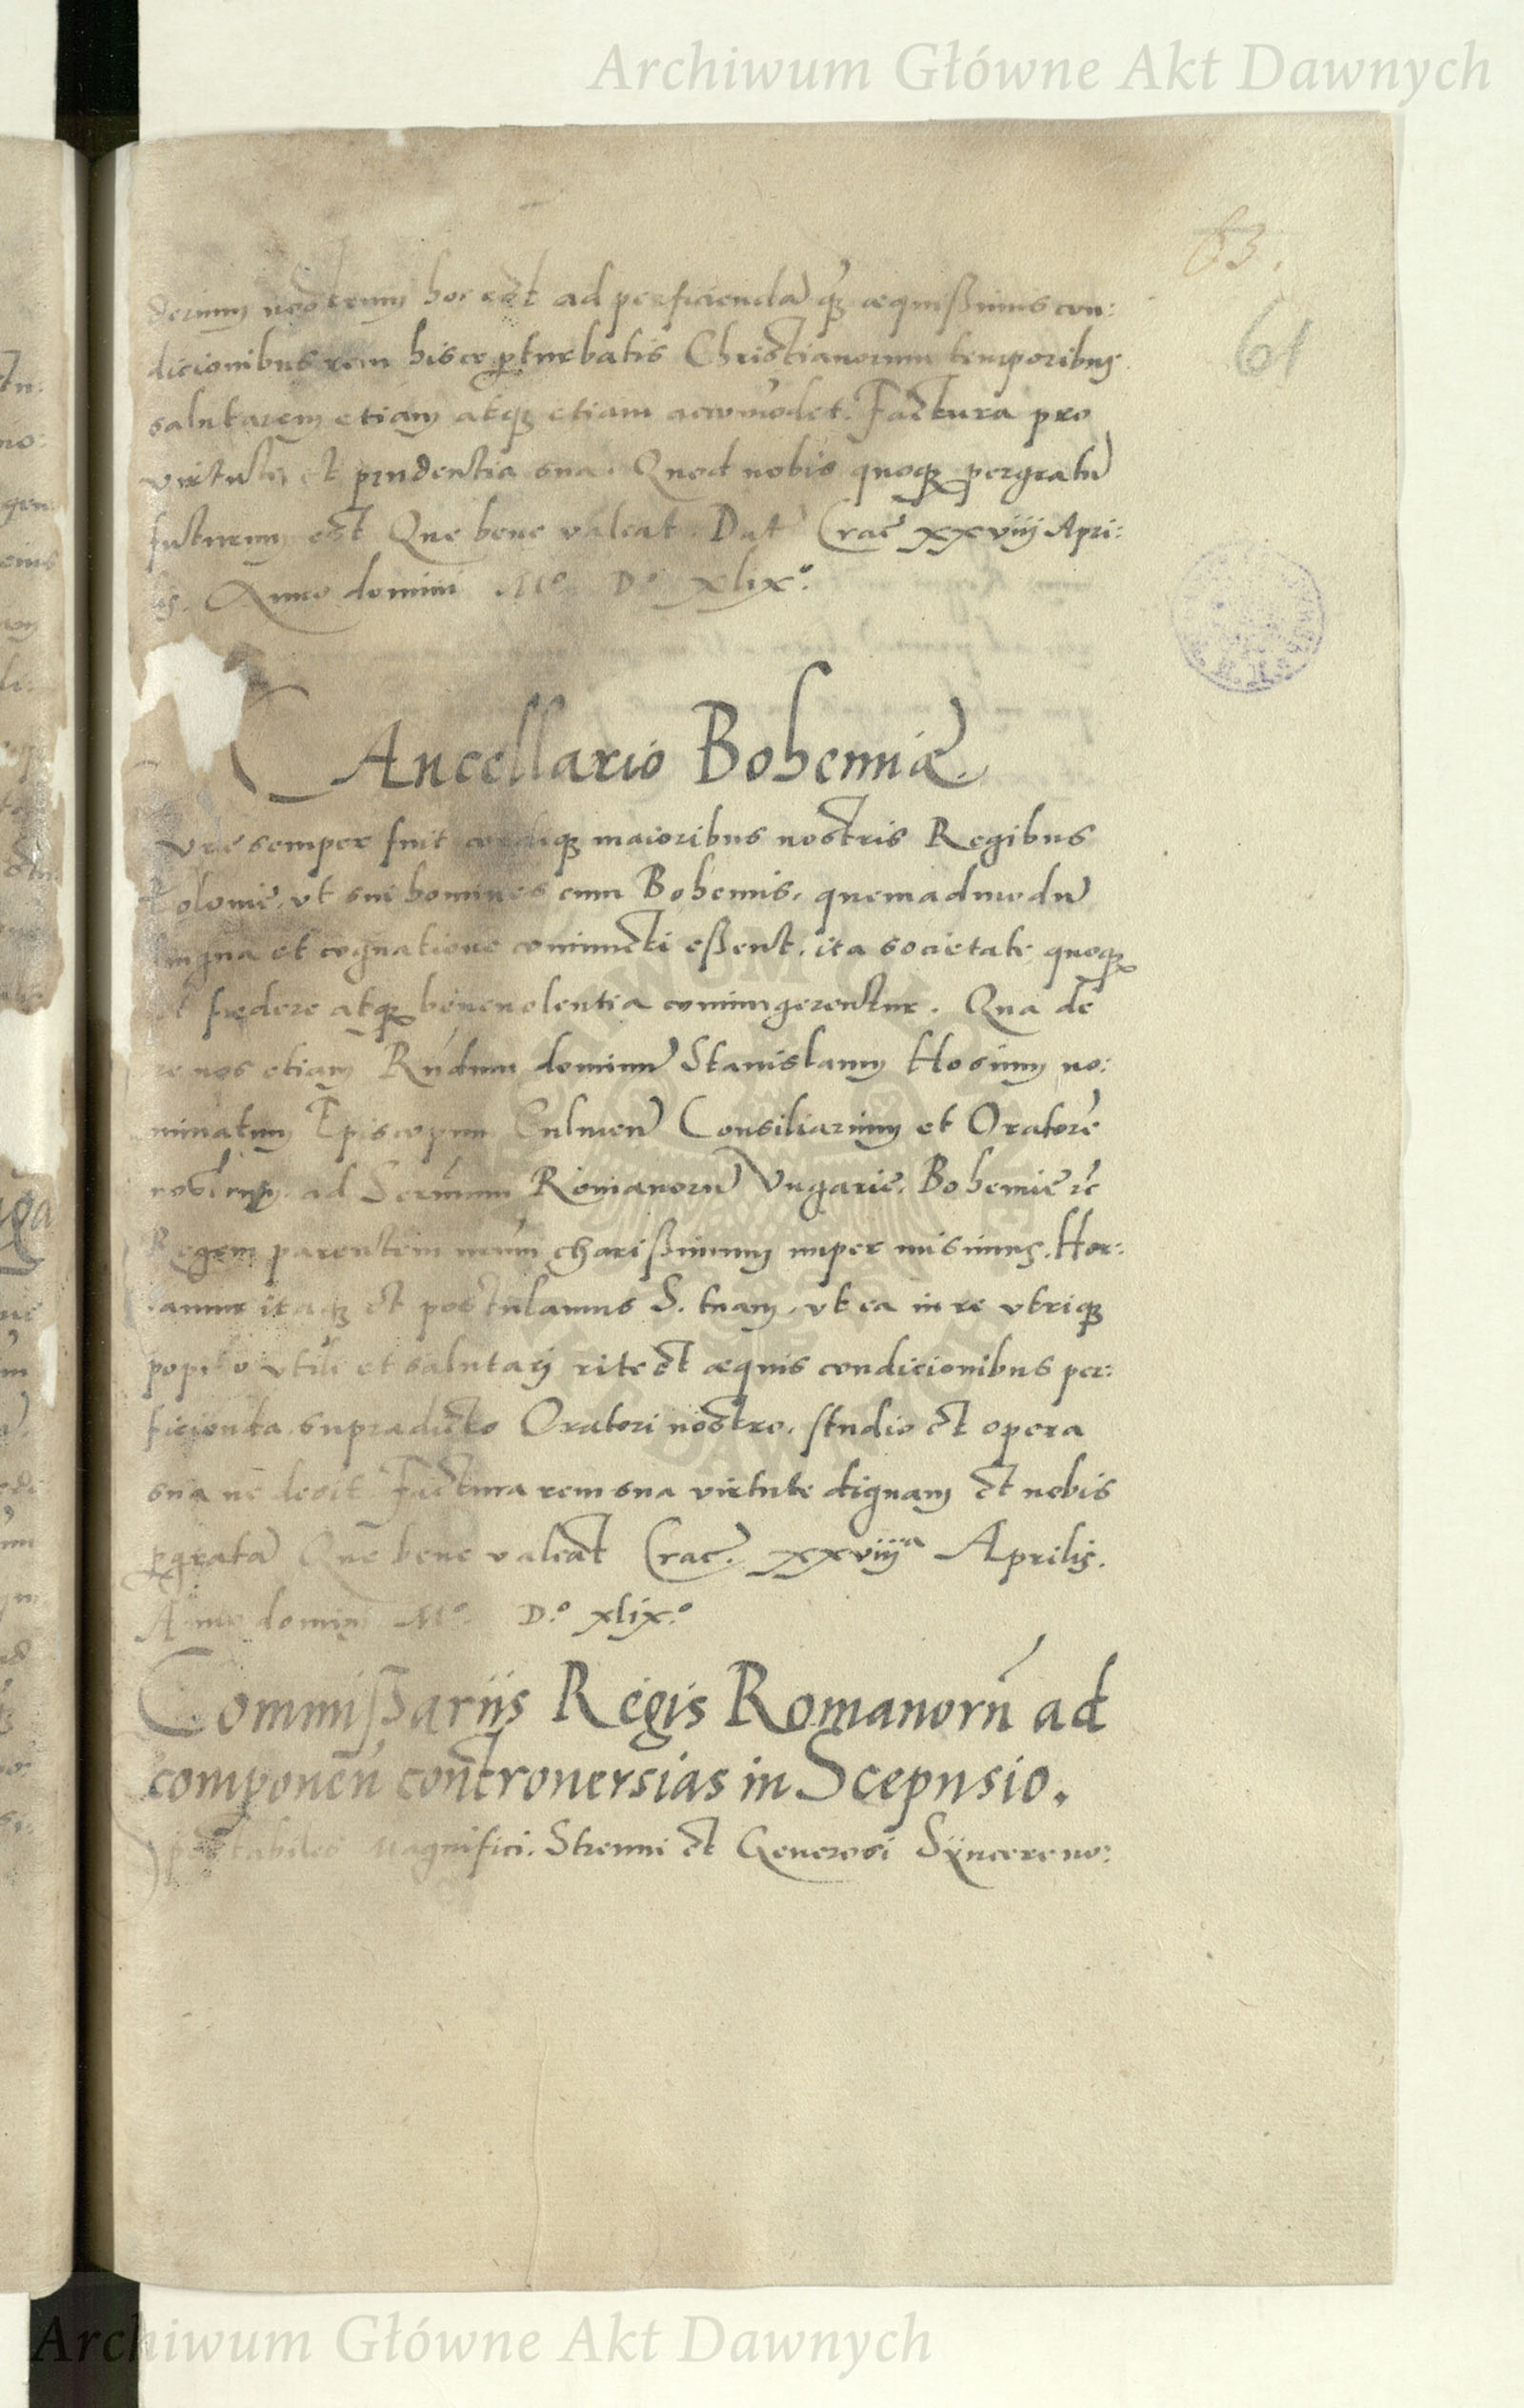 Archiwum Główne Akt Dawnych
63.
61
derium nostrum hoc est ad perficiendã q̃ʒ æquißimis con:
dicionibus rem hisce ꝑturbatis Christianorum temporibus
salutarem etiam atqʒ etiam accomodet. Factura pro
virtute et prudentia sua. Quod nobis quoqʒ pergratũ
futurum est Que bene valeat. Dat̃ Crac̃ xxviij Apri:
lis. Anno domini Mº Dº xlixº.
Cancellario Bohemiæ.
Curẽ semper fuit cordiqʒ maioribus nostris Regibus
Polonie, vt sui homines cum Bohemis, quemadmodũ
lingua et cognatione coniuncti eßent, ita societate quoqʒ
et fœdere atqʒ beneuolentia coniungerentur. Qua de
re nos etiam Rn̄dum dominũ Stanislaum Hosium no:
minatum Episcopum Culmeñ Consiliarium et Oratorẽ
nostrum, ad Serm̄um Romanorũ Vngarie, Bohemie ꝛc̃
Regem parentem nr̃um charißimum nuper misimus. Hor:
tamur itaqʒ et postulamus S. tuam, vt ea in re vtriqʒ
populo vtili et salutari rite et æquis condicionibus per:
ficienda supradicto Oratori nostro, studio et opera
sua ne desit Factura rem sua virtute dignam et nobis
ꝑgratã Que bene valeat Crac̃. xxviijª Aprilis.
Anno domini Mº. D.º xlix.º
Commißariis Regis Romanorũ ad
componeñ controuersias in Scepusio.
Spectabiles Magnifici. Strenui et Generosi Syncere no:
Archiwum Główne Akt Dawnych